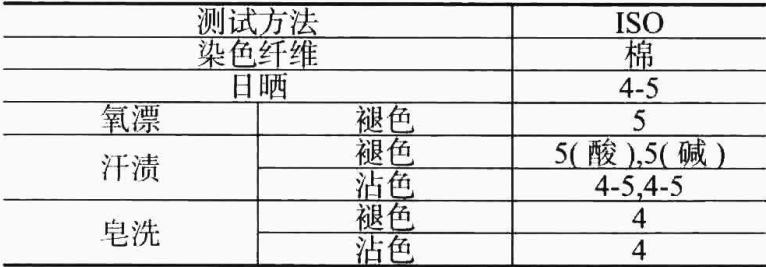 测试方法 ISO
染色纤维 棉
日晒 4-5
氧漂 褪色 5
汗渍 褪色 5(酸),5(碱)
沾色 4-5,4-5
皂洗 褪色 4
沾色 4